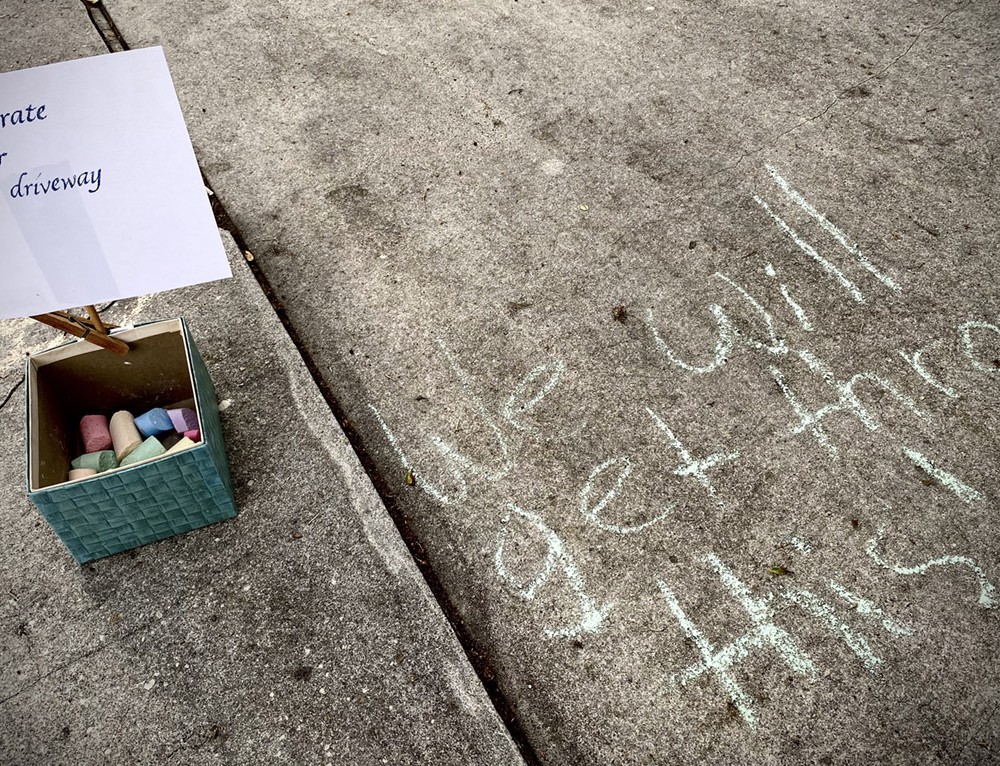 rate
r
driveway
We will
get thro
this